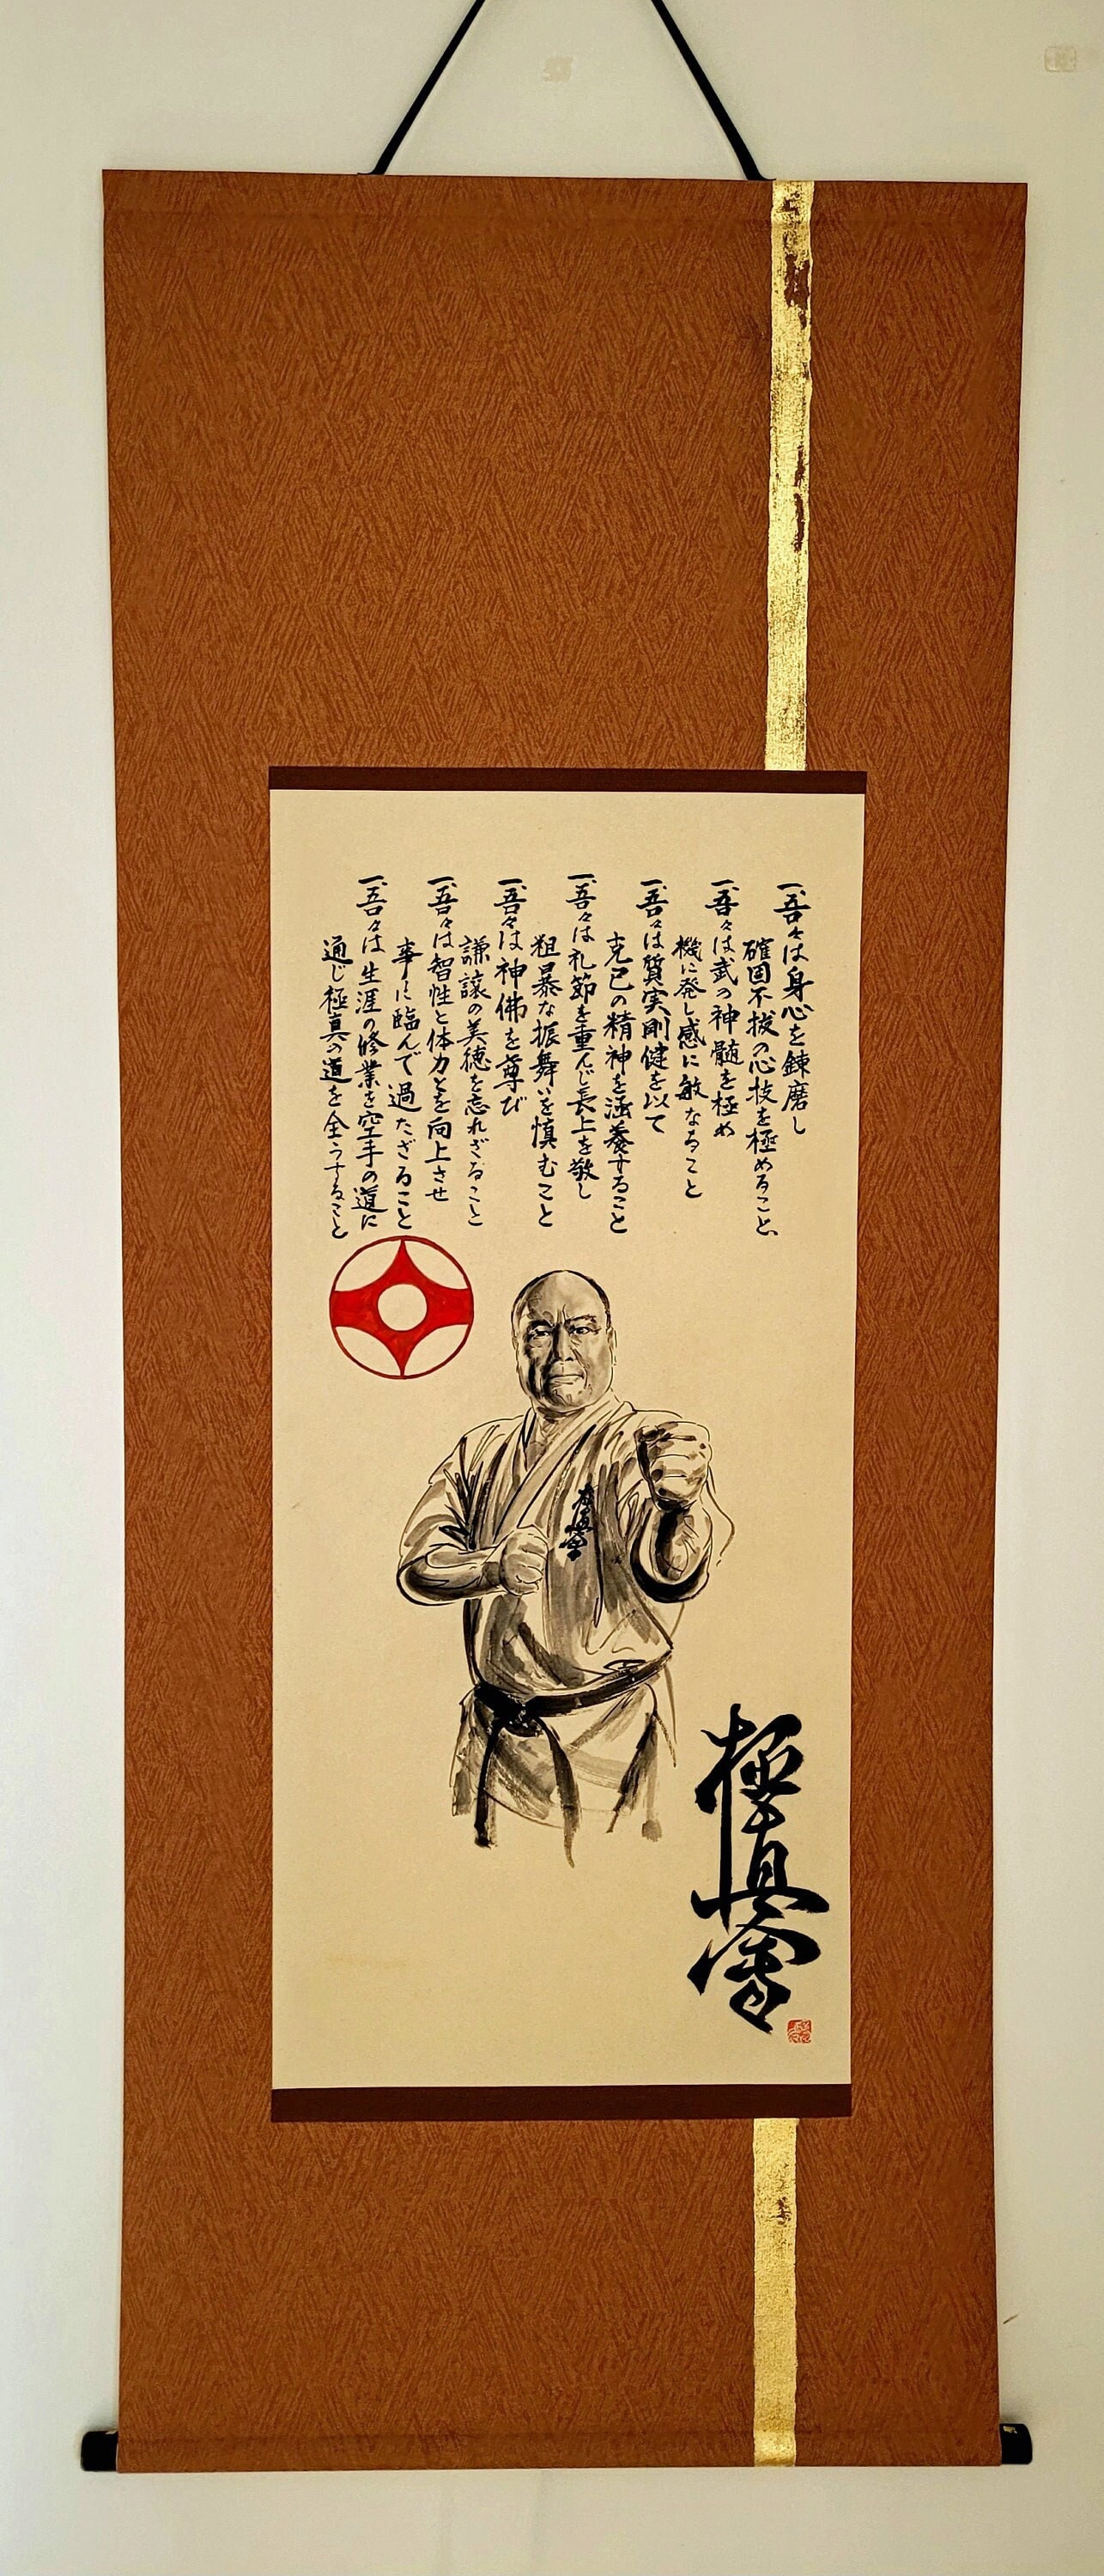 一、吾々は身心を錬磨し
確固不抜の心技を極めること、
一、吾々は武の神髄を極め
機に発し感に敏なること
一、吾々は質実剛健を以て
克己の精神を涵養すること
一、吾々は礼節を重んじ長上を敬し
粗暴な振舞いを慎むこと
一、吾々は神佛を尊び
謙譲の美徳を忘れざること
一、吾々は智性と体力とを向上させ
事に臨んで過たざること
一、吾々は生涯の修業を空手の道に
通じ極真の道を全うすること
極真會
極真會